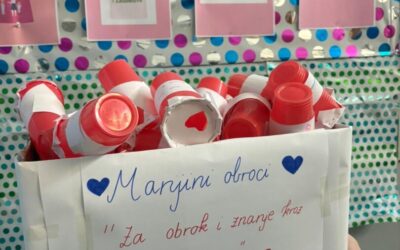 Marijini obroci
"Za obrok i znanje kroz
"